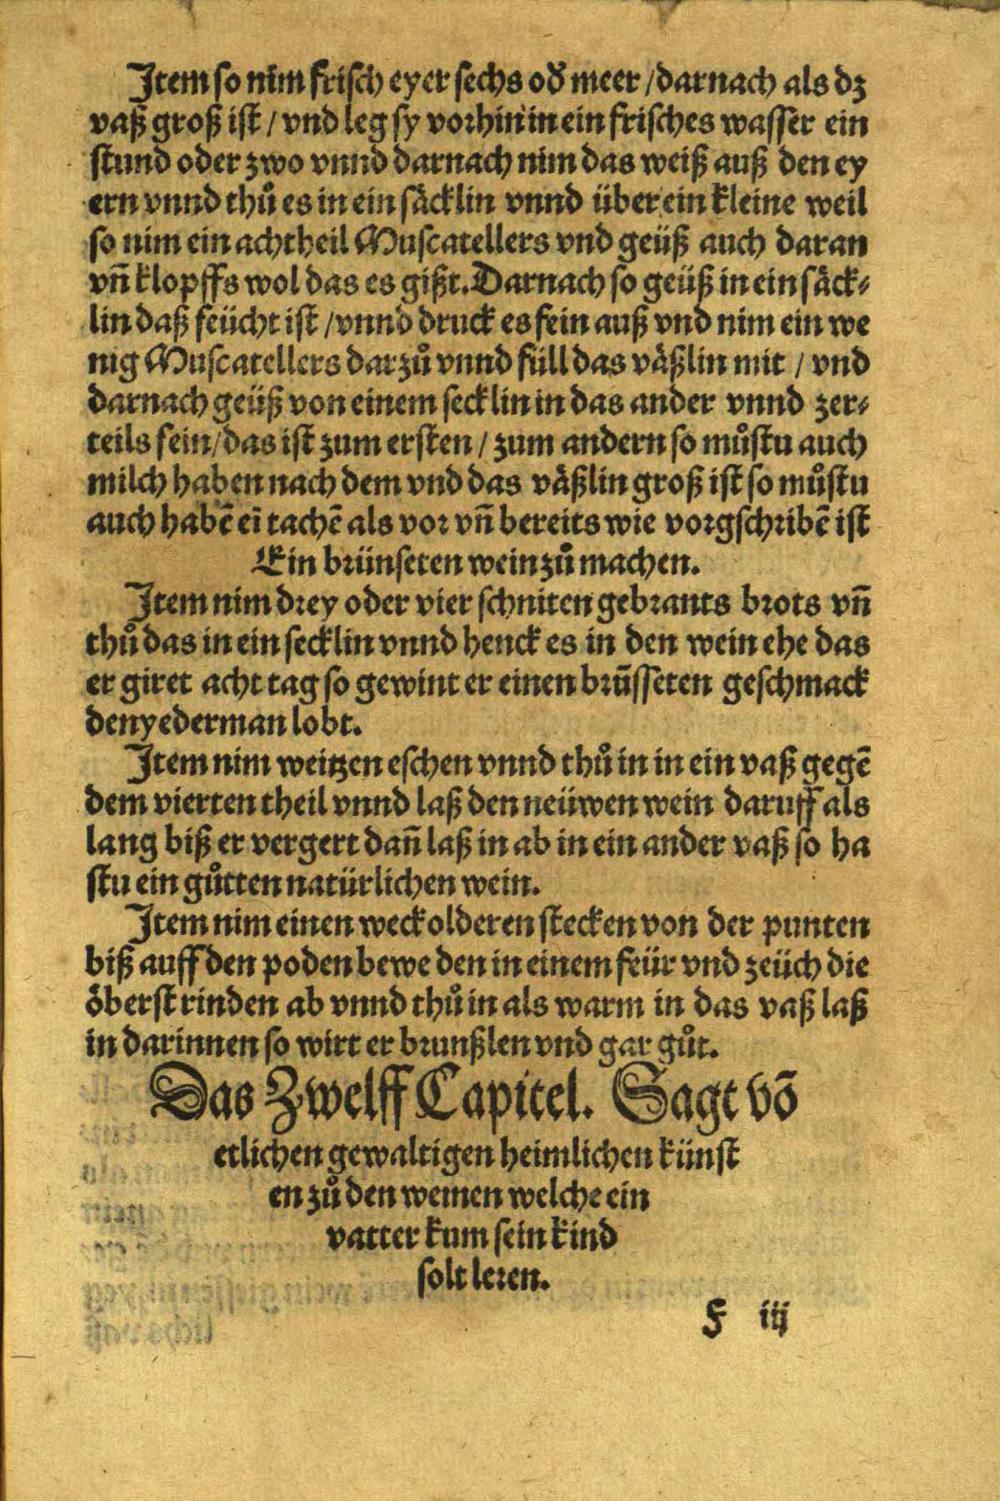 Item so nim̃ frisch eyer sechs od̕ meer / darnach als dz
vaß groß ist / vnd leg sy vorhin in ein frisches wasser ein
stund oder zwo vnnd darnach nim das weiß auß den ey
ern vnnd thů es in ein säcklin vnnd über ein kleine weil
so nim ein achtheil Muscatellers vnd geüß auch daran
vñ klopffs wol das es gißt. Darnach so geüß in ein säck⸗
lin daß feücht ist / vnnd druck es fein auß vnd nim ein we
nig Muscatellers darzů vnnd füll das väßlin mit / vnd
darnach geüß von einem secklin in das ander vnnd zer⸗
teils fein / das ist zum ersten / zum andern so můstu auch
milch haben nach dem vnd das väßlin groß ist so můstu
auch habẽ eĩ tachẽ als vor vñ bereits wie vorgschribẽ ist
Ein brünseten wein zů machen.
Item nim drey oder vier schniten gebrants brots vñ
thů das in ein secklin vnnd henck es in den wein ehe das
er giret acht tag so gewint er einen brüsseten geschmack
den yederman lobt.
Item nim weitzen eschen vnnd thů in in ein vaß gegẽ
dem vierten theil vnnd laß den neüwen wein daruff als
lang biß er vergert dañ laß in ab in ein ander vaß so ha
stu ein gůtten natürlichen wein.
Item nim einen weckolderen stecken von der punten
biß auff den poden bewe den in einem feür vnd zeüch die
öberst rinden ab vnnd thů in als warm in das vaß laß
in darinnen so wirt er brunßlen vnd gar gůt.
Das Zwelff Capitel. Sagt võ
etlichen gewaltigen heimlichen künst
en zů den weinen welche ein
vatter kum sein kind
solt leren.
F iij